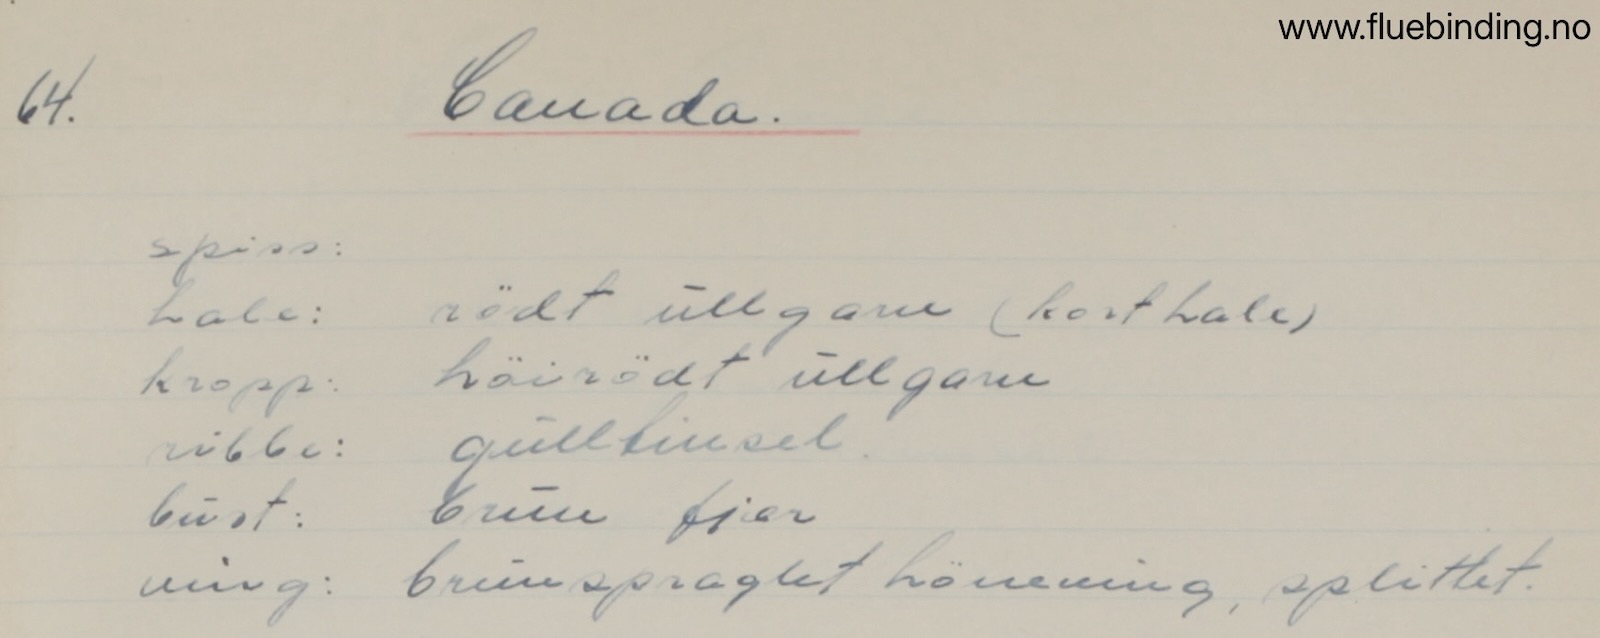 www.fluebinding.no
64. Canada.
spiss:
hale: rödt ullgarn (kort hale)
kropp: höirödt ullgarn
ribbe: gulltinsel.
bust: brun fjær
ving: brunspraglet höneving, splittet.